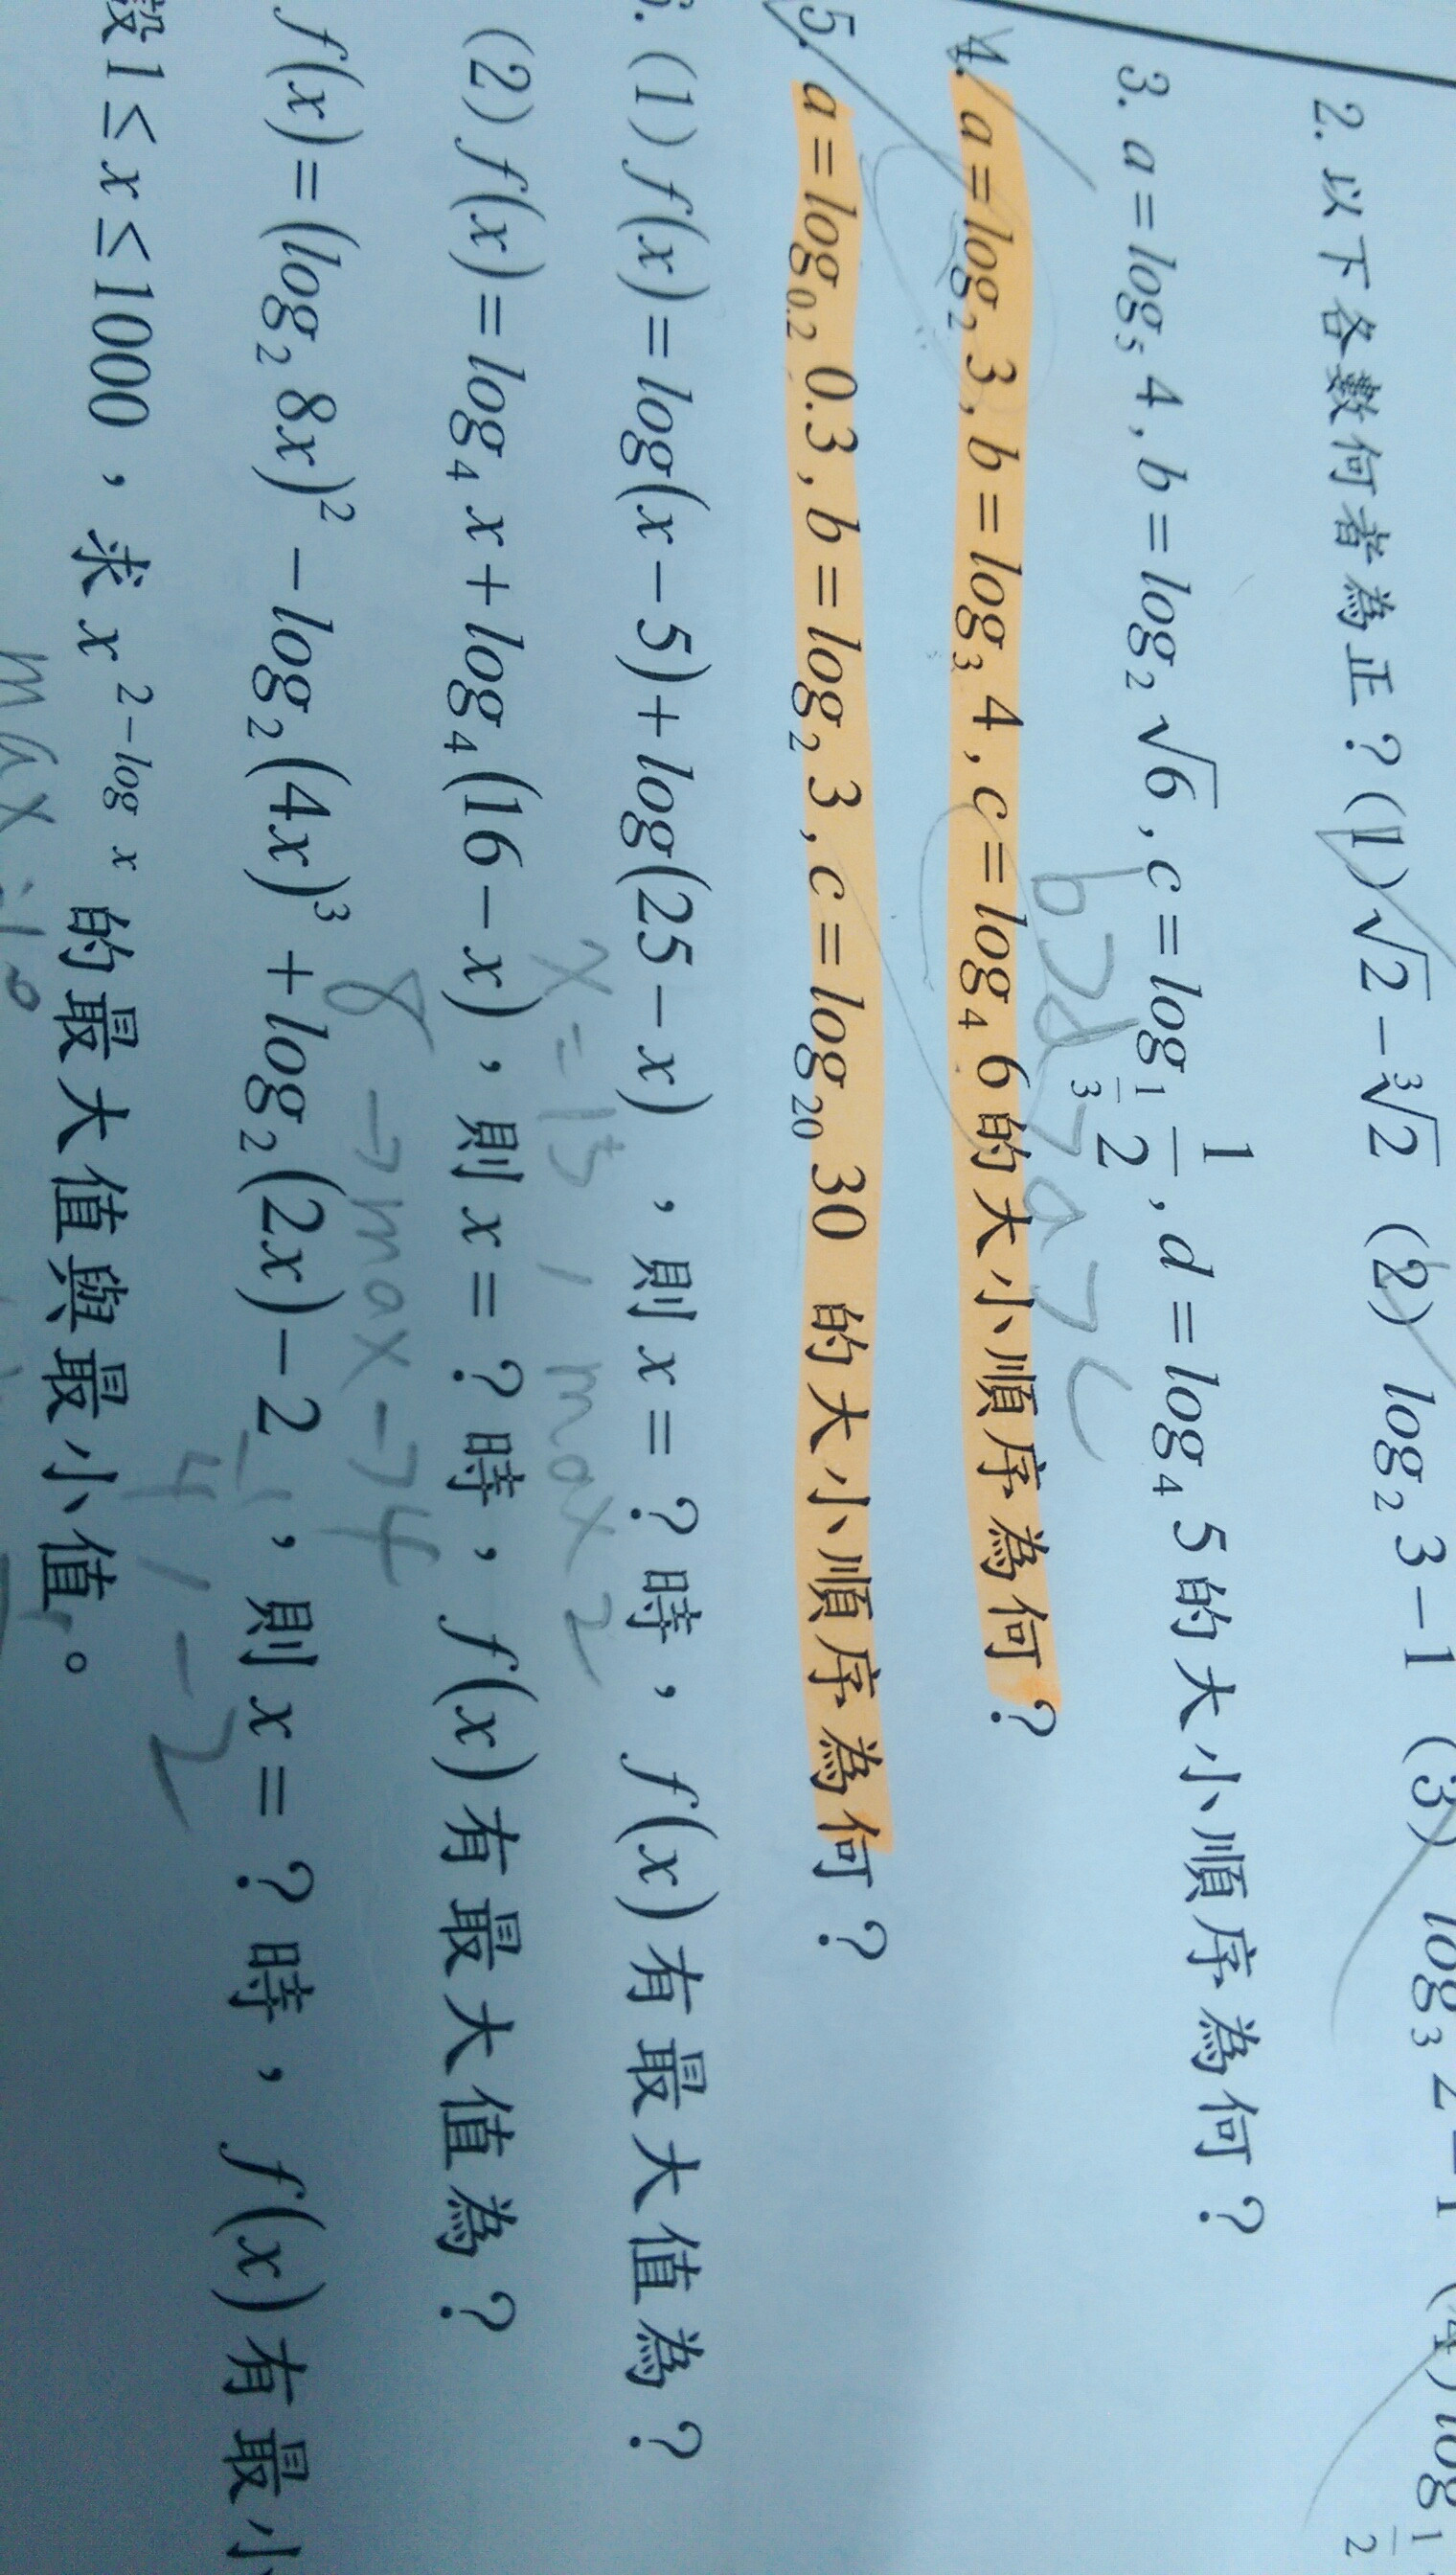 2. 以下各數何者為正？(1) √2 − ∛2 (2) log₂ 3 − 1 (3) log₃ 2 − 1 (4) log
3. a = log₅ 4 , b = log₂ √6 , c = log_{1/3} 1/2 , d = log₄ 5 的大小順序為何？
b>d>a>c
4. a = log₂ 3 , b = log₃ 4 , c = log₄ 6 的大小順序為何？
5. a = log₀.₂ 0.3 , b = log₂ 3 , c = log₂₀ 30 的大小順序為何？
(1) f(x) = log(x − 5) + log(25 − x) ，則 x = ？時，f(x) 有最大值為？
x = 15 , max 2
(2) f(x) = log₄ x + log₄(16 − x)，則 x = ？時，f(x) 有最大值為？
8 → max → 4
f(x) = (log₂ 8x)² − log₂(4x)³ + log₂(2x) − 2 ，則 x = ？時，f(x) 有最小
設 1 ≤ x ≤ 1000 ，求 x^{2−log x} 的最大值與最小值。
max : 10